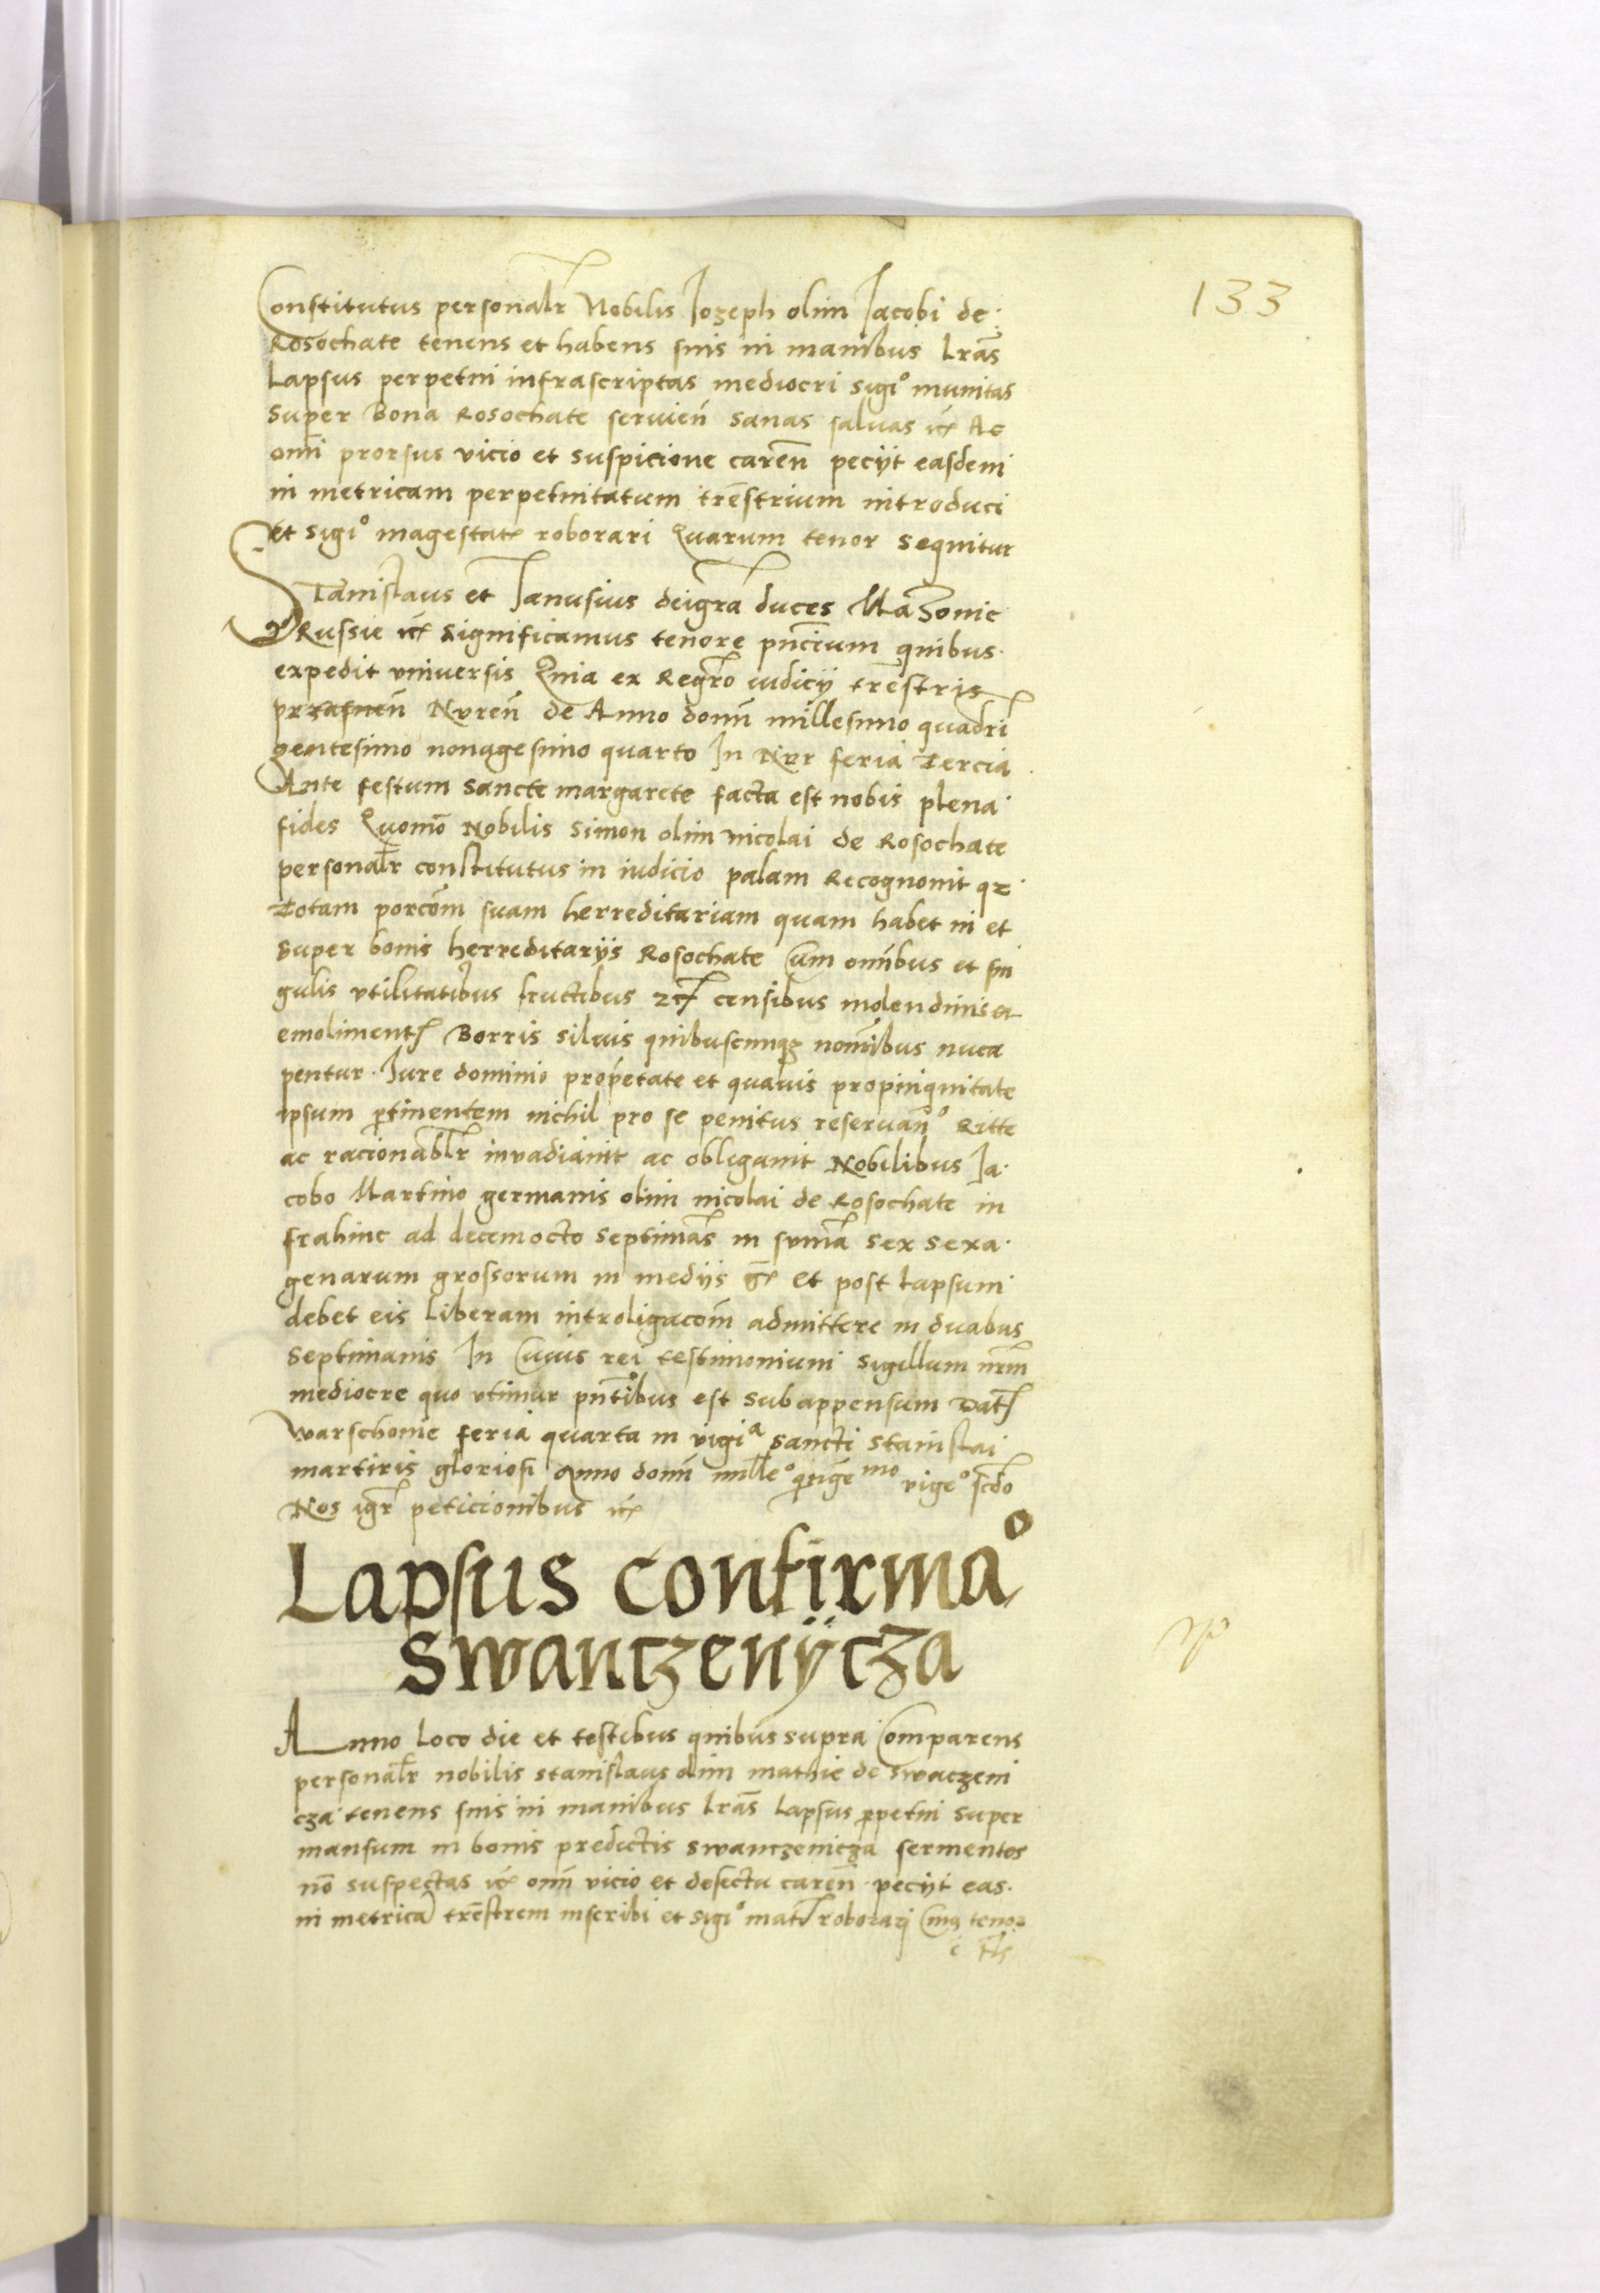 133
Constitutus personalr̄ Nobilis Jozeph olim Jacobi de
Rosochate tenens et habens suis in manibus Lrās
Lapsus perpetui infrascriptas mediocri sigiº munitas
super Bona Rosochate servien̄ sanas salvas ic̄ Ac
omī prorsus vicio et suspicione caren̄ peciit easdem
in metricam perpetuitatum tr̄estrium introduci
et sigiº magestat̄ roborari Quarum tenor sequitur
Stanislaus et Janusius deigrā duces Mazovie
Russie ic̄ significamus tenore pn̄cium quibus
expedit universis Quia ex Regrō iudicij tr̄estris
Nvren̄ de Anno domī millesimo quadri
gentesimo nonagesimo quarto In Nvr feria Tercia
Ante festum sancte margarete facta est nobis plena
fides Quomō Nobilis Simon olim nicolai de Rosochate
personalr̄ constitutus in iudicio palam Recognovit qz
Totam porcōm suam herreditariam quam habet in et
super bonis herreditarijs Rosochate Cum omībus et sin
gulis vtilitatibus fructibus 2c̄ censibus molendinis et
emoliment̄ Borris silvis quibuscunqz nomībus nucu
pentur Jure dominio proprietate et quavis propinquitate
ipsum ptinentem nichil pro se penitus reservanº Ritte
ac racionablr̄ invadiavit ac obligavit Nobilibus Ja
cobo Martino germanis olim nicolai de Rosochate in
frahinc ad decemocto septimās in sumā sex sexa
genarum grossorum in medijs ḡ Et post Lapsum
debet eis Liberam introligacōm admittere in duabus
Septimanis In Cuius rei testimonium sigillum nrm̄
mediocre quo vtimur pn̄tibus est subappensum Dat̄
Warschovie feria quarta in vigiª Sancti Stanislai
martiris gloriosi Anno domī milleº qͥnge mo vigeº scdo
Nos igr̄ peticionibus ic̄
Lapsus confirmaº
swanczenÿcza
Anno Loco die et testibus quibus supra Comparens
personalr̄ nobilis stanislaus olim mathie de swaczeni
cza tenens suis in manibus Lrās Lapsus ppetui super
mansum in bonis predictis swanczenicza servientes
nō suspectas ic̄ omī vicio et defectu caren̄ peciit eas
in metricā tr̄estrem inscribi et sigiº mat̄ roborari Cuius tenor